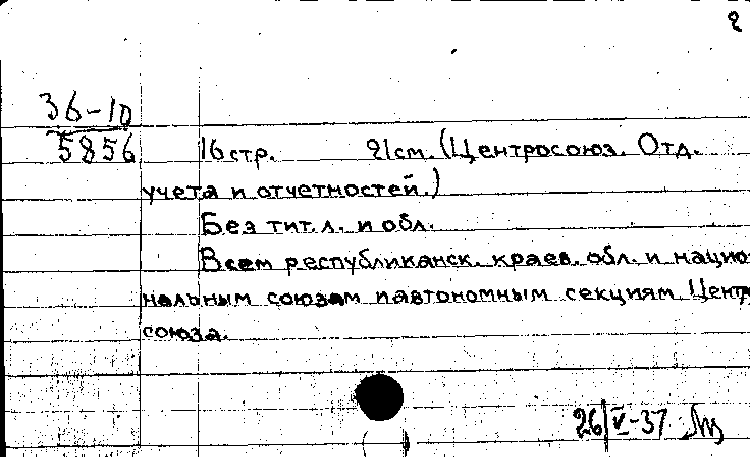 2
36-10
5856
16 стр. 21 см. (Центросоюз. Отд.
учета и отчетностей.)
Без тит. л. и обл.
Всем республиканск. краев. обл. и нацио-
нальным союзам и автономным секциям Центро
союза.
26/V-37.